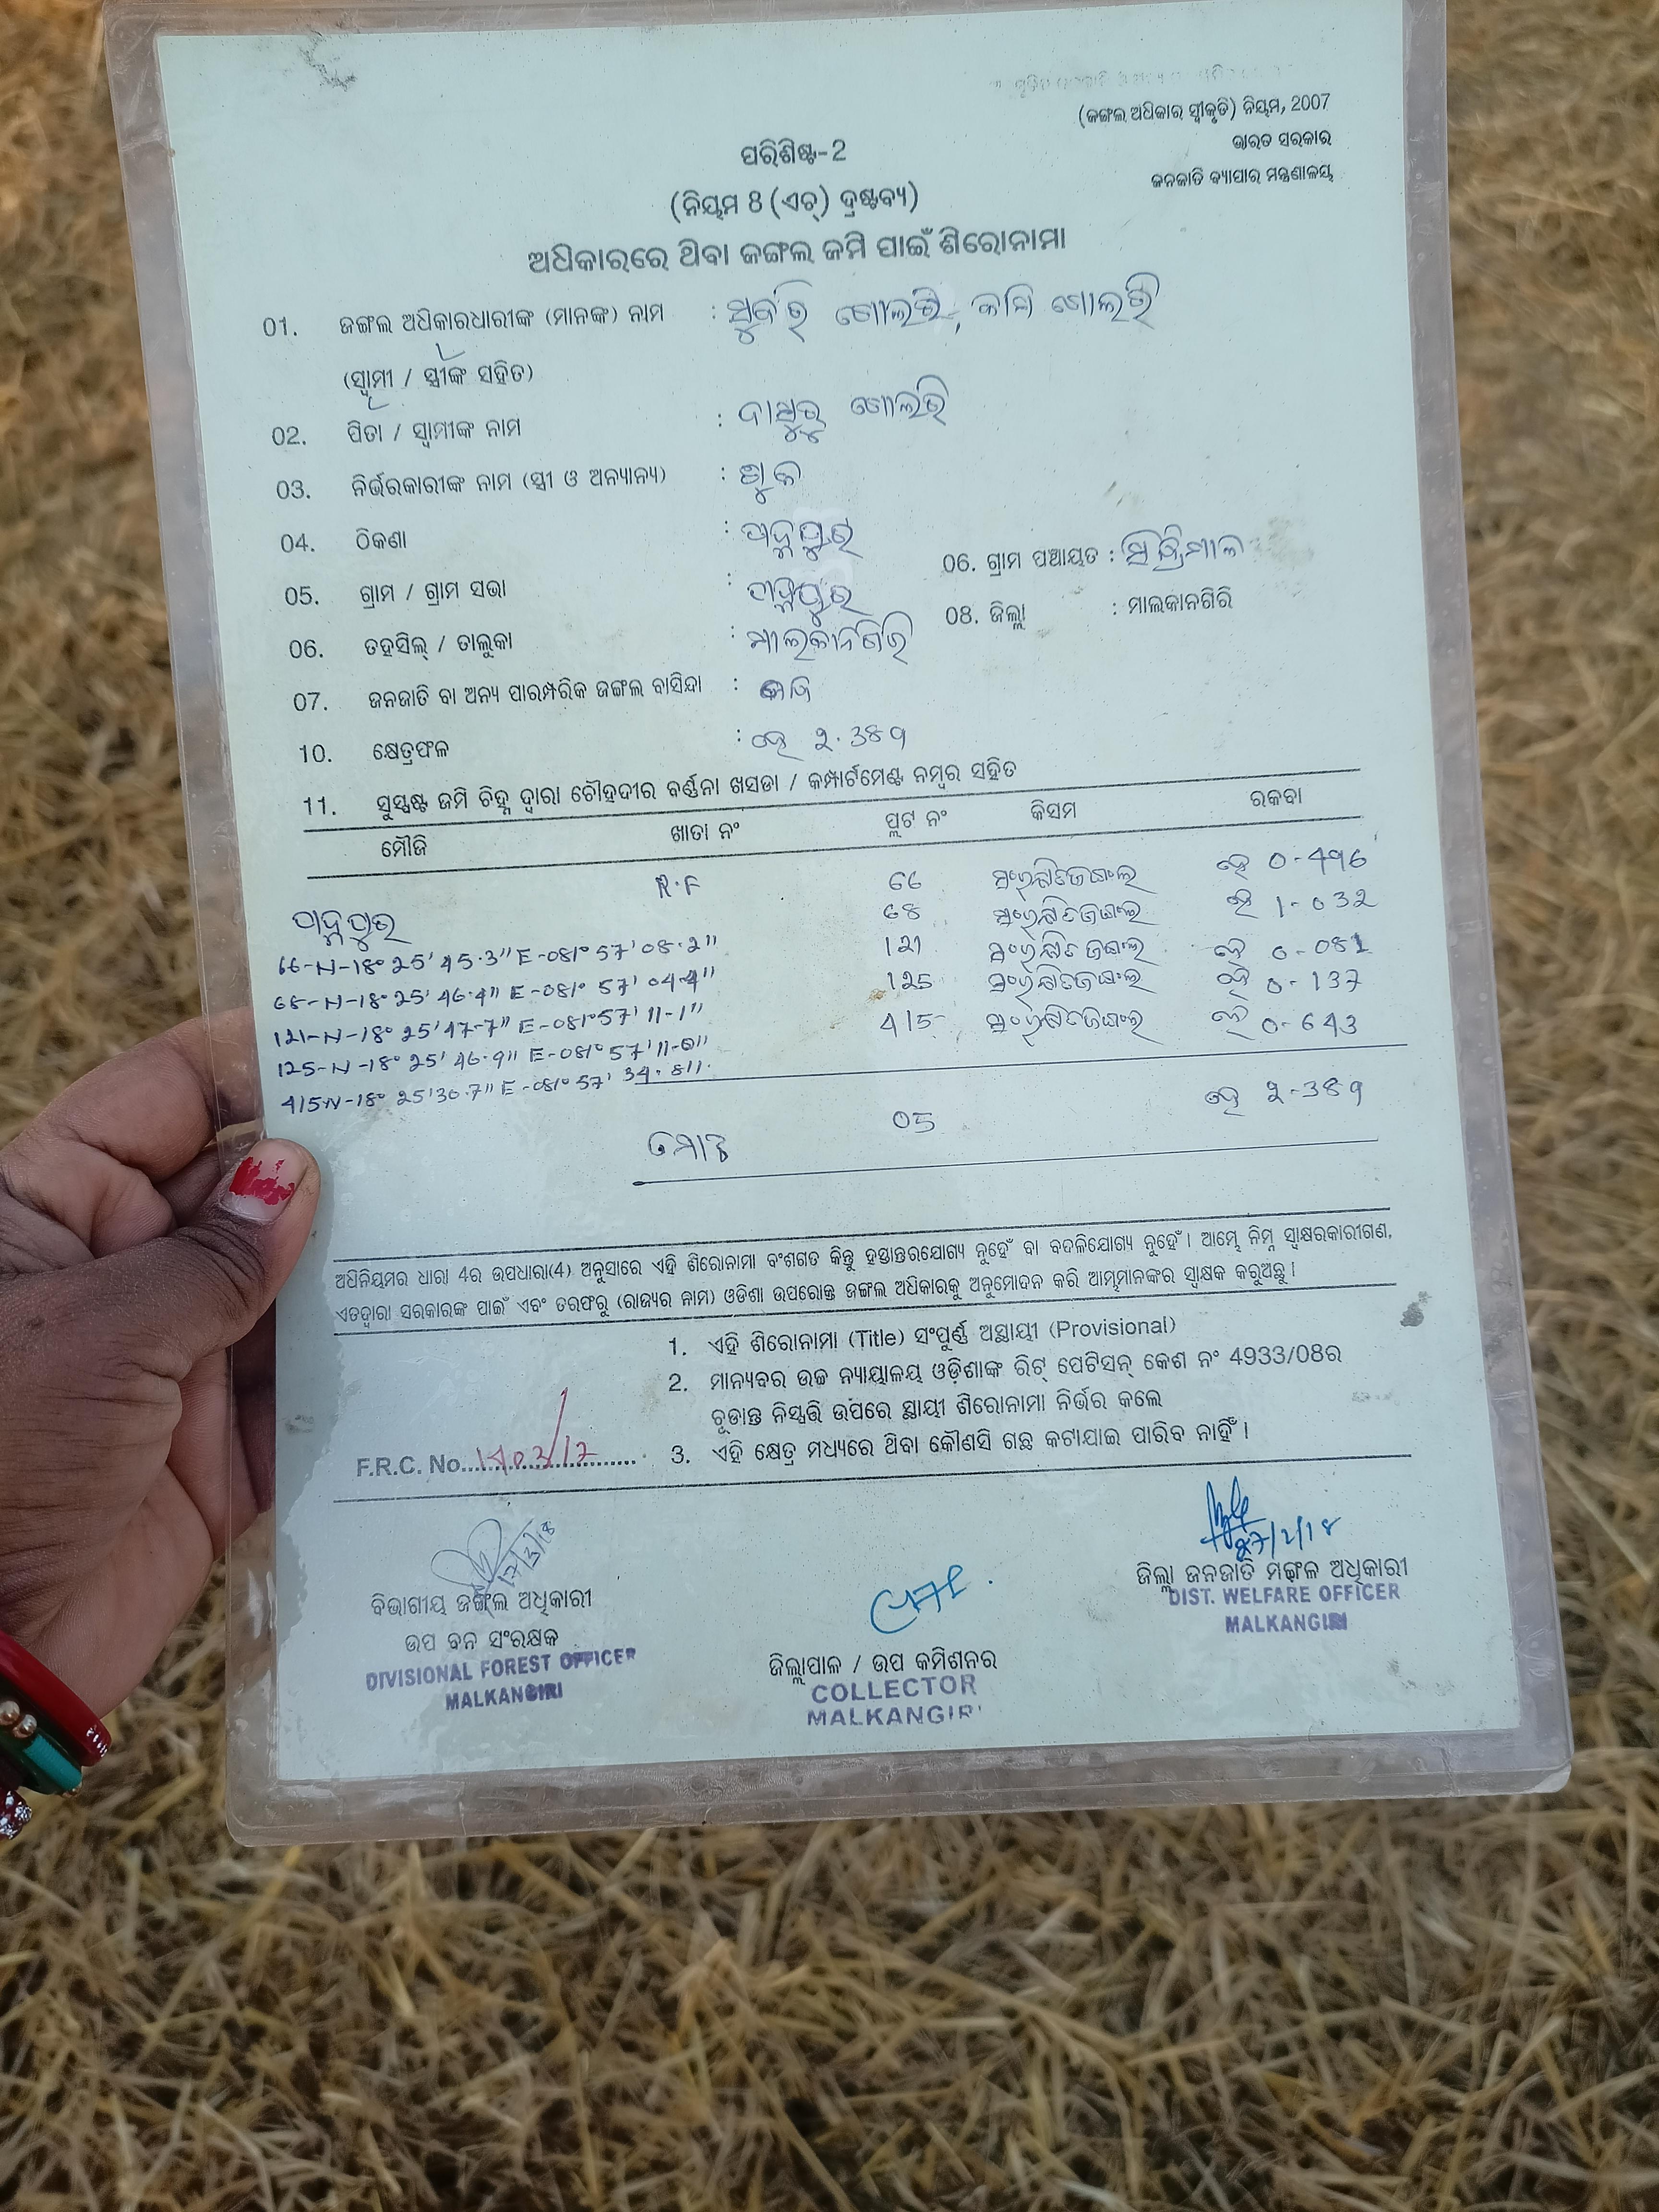 (ଜଙ୍ଗଲ ଅଧିକାର ସ୍ୱୀକୃତି) ନିୟମ, 2007
ଭାରତ ସରକାର
ଜନଜାତି ବ୍ୟାପାର ମନ୍ତ୍ରଣାଳୟ
ପରିଶିଷ୍ଟ-2
(ନିୟମ 8 (ଏଚ୍) ଦ୍ରଷ୍ଟବ୍ୟ)
ଅଧିକାରରେ ଥିବା ଜଙ୍ଗଲ ଜମି ପାଇଁ ଶିରୋନାମା
01. ଜଙ୍ଗଲ ଅଧିକାରଧାରୀଙ୍କ (ମାନଙ୍କ) ନାମ :
(ସ୍ୱାମୀ / ସ୍ତ୍ରୀଙ୍କ ସହିତ)
02. ପିତା / ସ୍ୱାମୀଙ୍କ ନାମ :
03. ନିର୍ଭରକାରୀଙ୍କ ନାମ (ସ୍ତ୍ରୀ ଓ ଅନ୍ୟାନ୍ୟ) :
04. ଠିକଣା : ପଦ୍ମପୁର
05. ଗ୍ରାମ / ଗ୍ରାମ ସଭା : ପଦ୍ମପୁର 06. ଗ୍ରାମ ପଞ୍ଚାୟତ :
06. ତହସିଲ୍ / ତାଲୁକା : ମାଲକାନଗିରି 08. ଜିଲ୍ଲା : ମାଲକାନଗିରି
07. ଜନଜାତି ବା ଅନ୍ୟ ପାରମ୍ପରିକ ଜଙ୍ଗଲ ବାସିନ୍ଦା :
10. କ୍ଷେତ୍ରଫଳ : ହେ 2.389
11. ସୁସ୍ପଷ୍ଟ ଜମି ଚିହ୍ନ ଦ୍ୱାରା ଚୌହଦୀର ବର୍ଣ୍ଣନା ଖସଡା / କମ୍ପାର୍ଟମେଣ୍ଟ ନମ୍ବର ସହିତ
ମୌଜି ଖାତା ନଂ ପ୍ଲଟ ନଂ କିସମ ରକବା
R.F 66 ସଂରକ୍ଷିତ ଜଙ୍ଗଲ ହେ 0-496
ପଦ୍ମପୁର 68 ସଂରକ୍ଷିତ ଜଙ୍ଗଲ ହେ 1-032
66-N-18° 25' 45.3" E-081° 57' 08.2" 121 ସଂରକ୍ଷିତ ଜଙ୍ଗଲ ହେ 0-081
68-N-18° 25' 46.4" E-081° 57' 04.4" 125 ସଂରକ୍ଷିତ ଜଙ୍ଗଲ ହେ 0-137
121-N-18° 25' 47-7" E-081° 57' 11-1" 415 ସଂରକ୍ଷିତ ଜଙ୍ଗଲ ହେ 0-643
125-N-18° 25' 46.9" E-081° 57' 11-0"
415N-18° 25' 30.7" E-081° 57' 34.8"
ମୋଟ 05 ହେ 2-389
ଅଧିନିୟମର ଧାରା 4ର ଉପଧାରା(4) ଅନୁସାରେ ଏହି ଶିରୋନାମା ବଂଶଗତ କିନ୍ତୁ ହସ୍ତାନ୍ତରଯୋଗ୍ୟ ନୁହେଁ ବା ବଦଳିଯୋଗ୍ୟ ନୁହେଁ । ଆମ୍ଭେ ନିମ୍ନ ସ୍ୱାକ୍ଷରକାରୀଗଣ,
ଏତଦ୍ଦ୍ୱାରା ସରକାରଙ୍କ ପାଇଁ ଏବଂ ତରଫରୁ (ରାଜ୍ୟର ନାମ) ଓଡିଶା ଉପରୋକ୍ତ ଜଙ୍ଗଲ ଅଧିକାରକୁ ଅନୁମୋଦନ କରି ଆମ୍ଭମାନଙ୍କର ସ୍ୱାକ୍ଷକ କରୁଅଛୁ ।
1. ଏହି ଶିରୋନାମା (Title) ସଂପୂର୍ଣ୍ଣ ଅସ୍ଥାୟୀ (Provisional)
2. ମାନ୍ୟବର ଉଚ୍ଚ ନ୍ୟାୟାଳୟ ଓଡ଼ିଶାଙ୍କ ରିଟ୍ ପେଟିସନ୍ କେଶ ନଂ 4933/08ର
ଚୂଡାନ୍ତ ନିସ୍ପତ୍ତି ଉପରେ ସ୍ଥାୟୀ ଶିରୋନାମା ନିର୍ଭର କଲେ
3. ଏହି କ୍ଷେତ୍ର ମଧ୍ୟରେ ଥିବା କୌଣସି ଗଛ କଟାଯାଇ ପାରିବ ନାହିଁ ।
F.R.C. No.
17/2/18
27/2/18
ବିଭାଗୀୟ ଜଙ୍ଗଲ ଅଧିକାରୀ
ଉପ ବନ ସଂରକ୍ଷକ
DIVISIONAL FOREST OFFICER
MALKANGIRI
ଜିଲ୍ଲାପାଳ / ଉପ କମିଶନର
COLLECTOR
MALKANGIRI
ଜିଲ୍ଲା ଜନଜାତି ମଙ୍ଗଳ ଅଧିକାରୀ
DIST. WELFARE OFFICER
MALKANGIRI